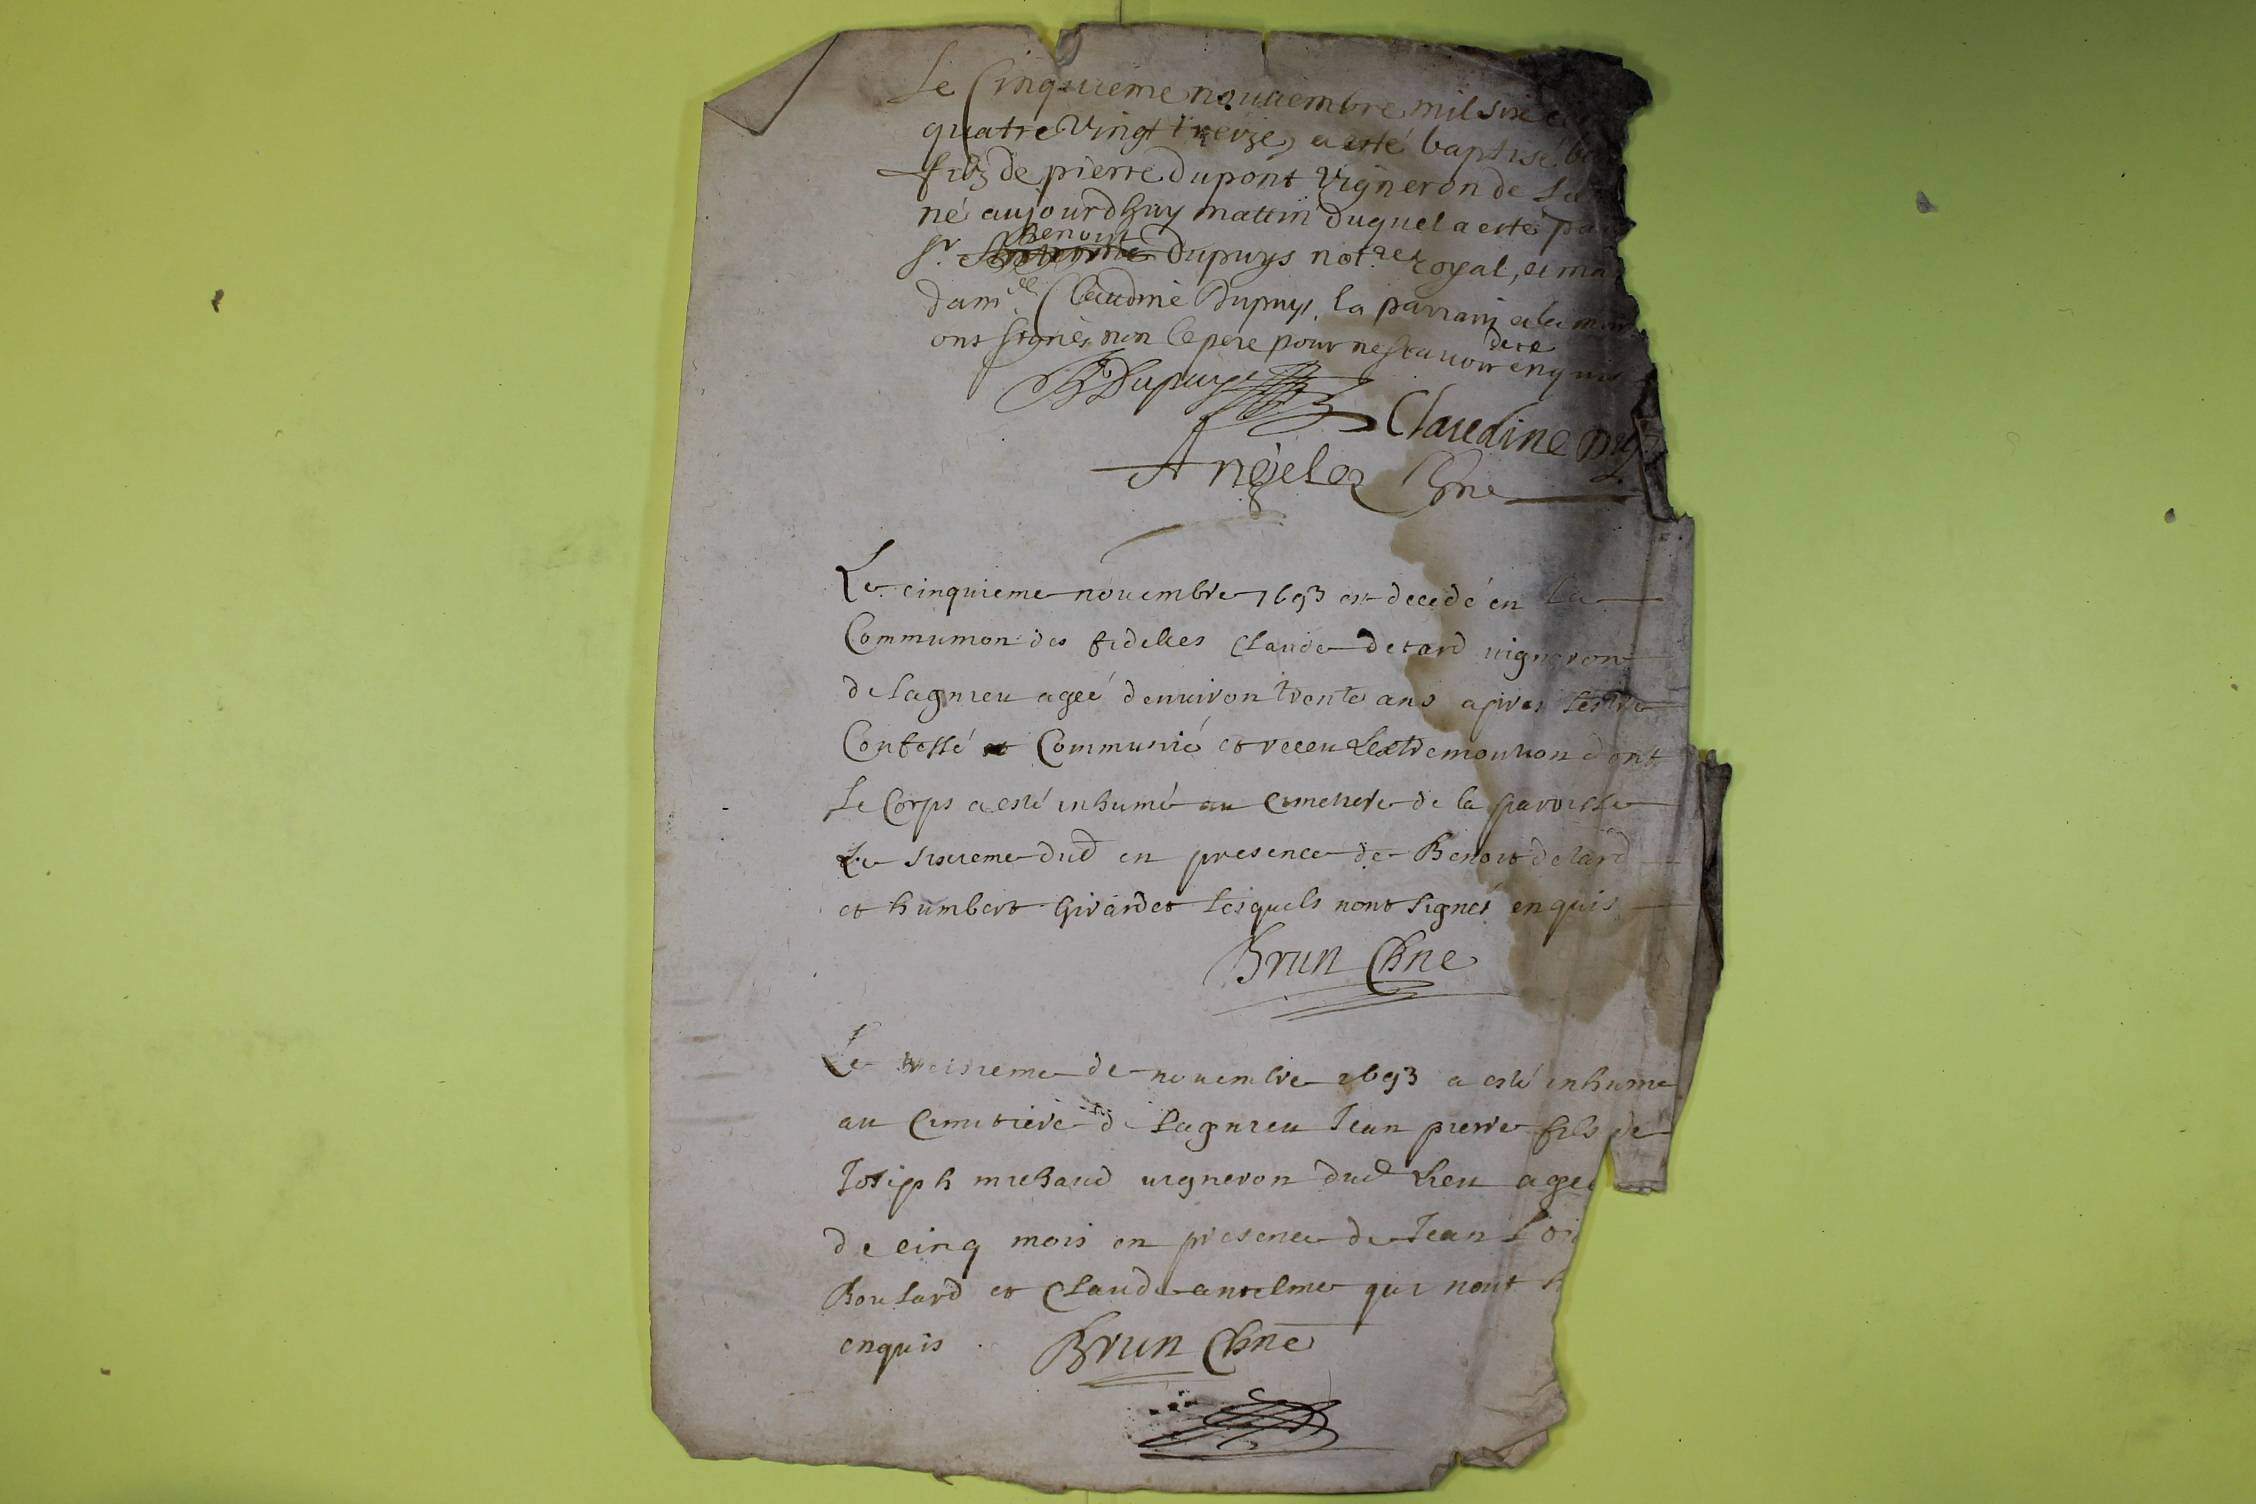 Le Cinquieme nouuembre mil six
quatre Vingt treize, a esté baptisé
filz de pierre Dupont Vigneron de La
né aujourdhuy mattin duquel a esté pa
Benoist
Sr. Dupuys notre royal, et ma
damlle Claudine Dupuys, la parrain et la mar
ont signés, non le pere pour ne scauoir enquis
de ce
B Dupuys
Claudine Duy
Angelos Chne
Le cinquieme nouembre 1693 est decedé en La
Communion des fidelles Claude detard uigneron
de lagnieu ageé denuiron trente ans apres s'estre
Confessé et Communié et receu L'extremontion dont
Le Corps a esté inhumé au Cimetiere de la paroisse
Le sixieme dud en presence de Benoist detard
et humbert Girardet Lesquels nont signés enquis
Brun Chne
Le treisieme de nouembre 1693 a esté inhume
au Cimetiere de Lagnieu Jean pierre fils de
Joseph michaud uigneron dud Lieu ageé
de cinq mois en presence de Jean Loi
Boulard et Claude antelme qui nont
enquis. Brun Chne